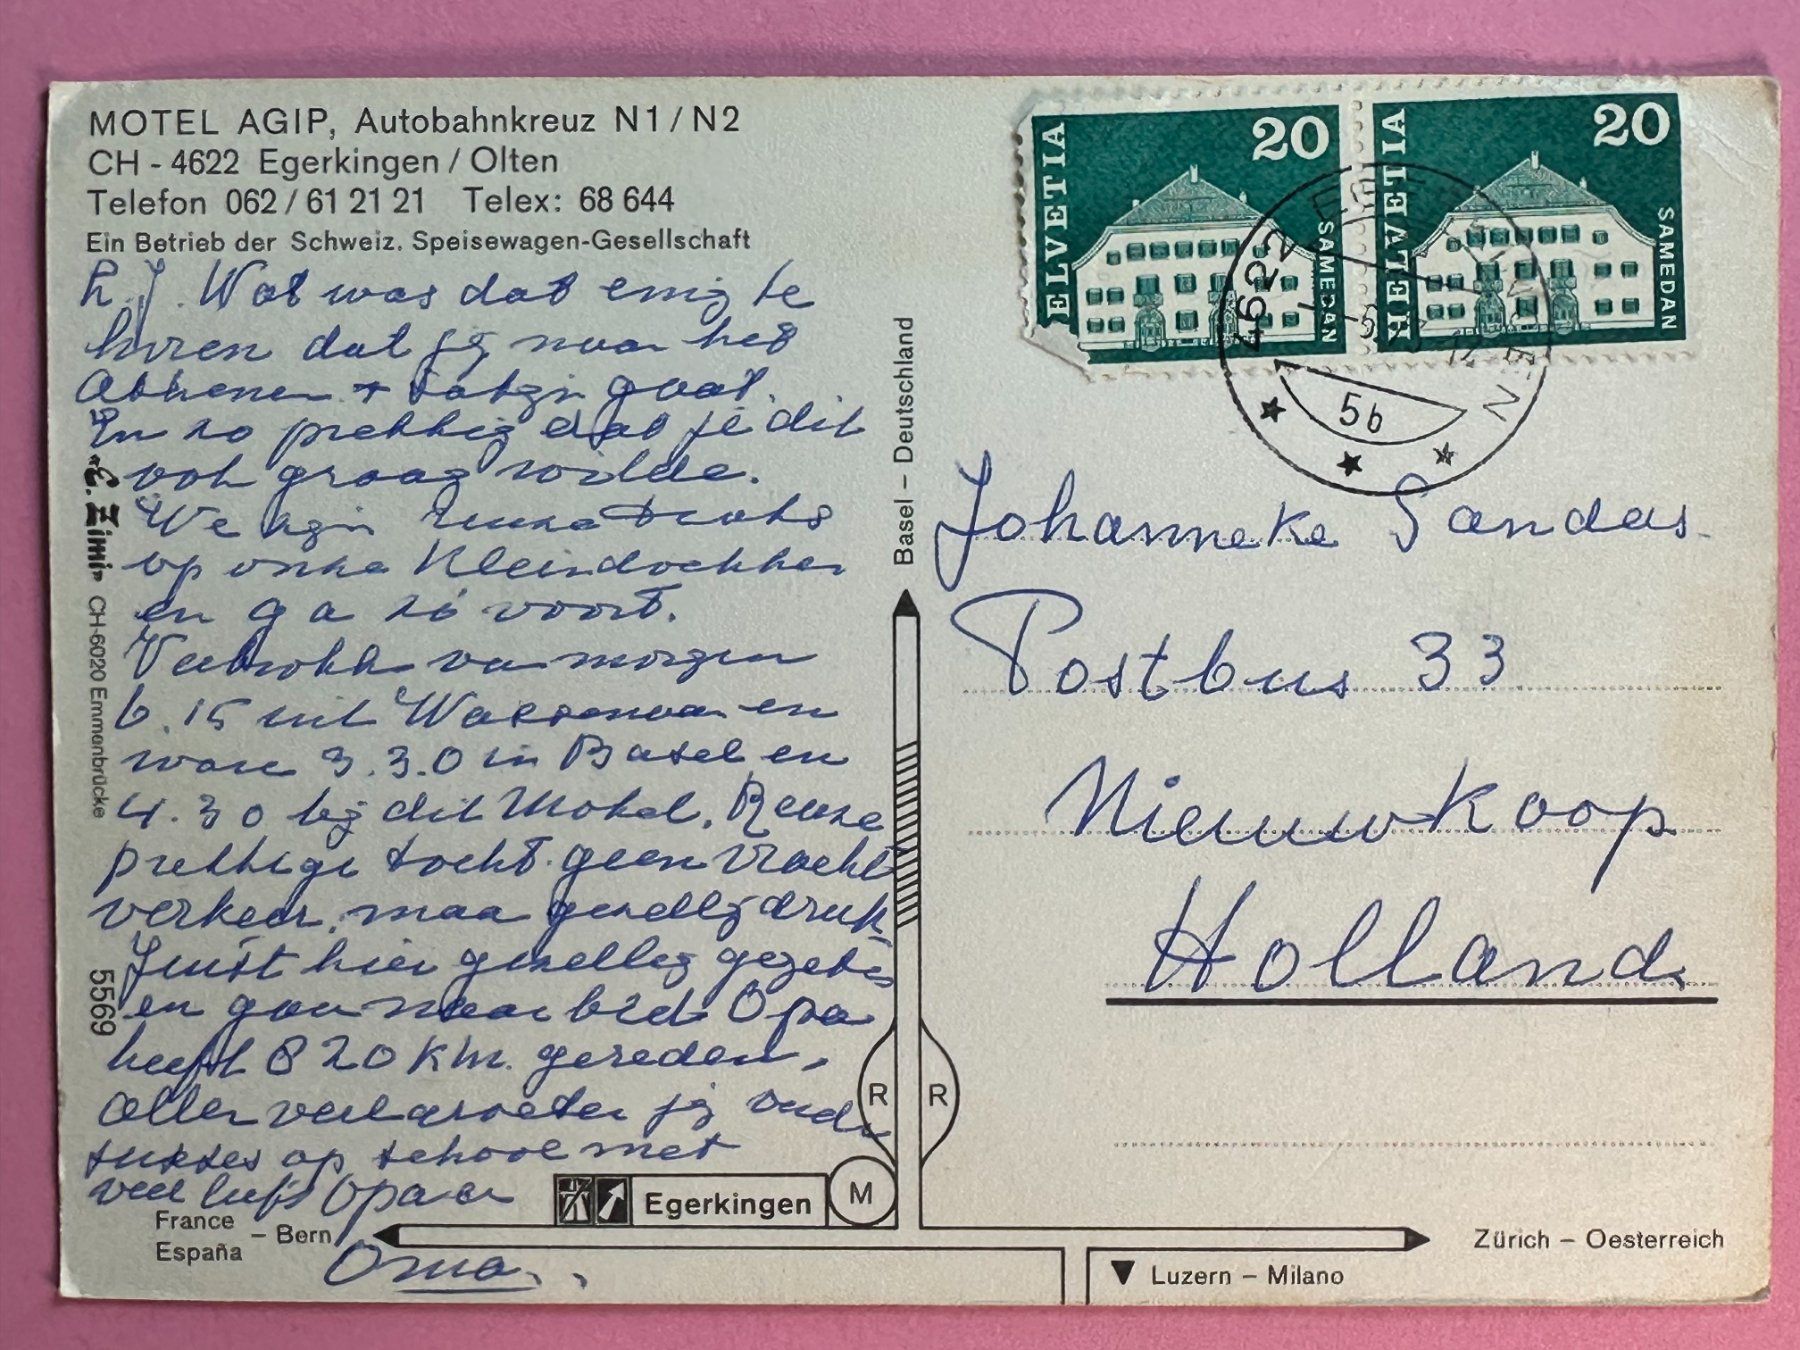 MOTEL AGIP, Autobahnkreuz N1/N2
CH - 4622 Egerkingen / Olten
Telefon 062/61 21 21 Telex: 68 644
Ein Betrieb der Schweiz. Speisewagen-Gesellschaft
L.J. Wat was dat enig te
horen dat jij naar het
Atheneum + gaat.
En zo prettig dat je dit
ook graag wilde.
We zijn reuze trots
op onze Kleindochter
en ga zó voort.
van morgen
6.15 uit Wassenaar en
ware 3.30 in Basel en
4.30 bij dit Motel. Reuze
prettige tocht. geen vracht
verkeer, maar gezellig druk
Juist hier gezellig gegeten
en gaan naar bed. Opa
heeft 820 Km. gereden,
jij
sukses op school met
veel liefs Opa en
Oma.
"E. Zimi" CH-6020 Emmenbrücke
5569
Basel – Deutschland
R
R
M
Egerkingen
France
España
– Bern
Zürich – Oesterreich
Luzern – Milano
HELVETIA
20
SAMEDAN
HELVETIA
20
SAMEDAN
4622
5b
Johanneke Sandas.
Postbus 33
Nieuwkoop
Holland